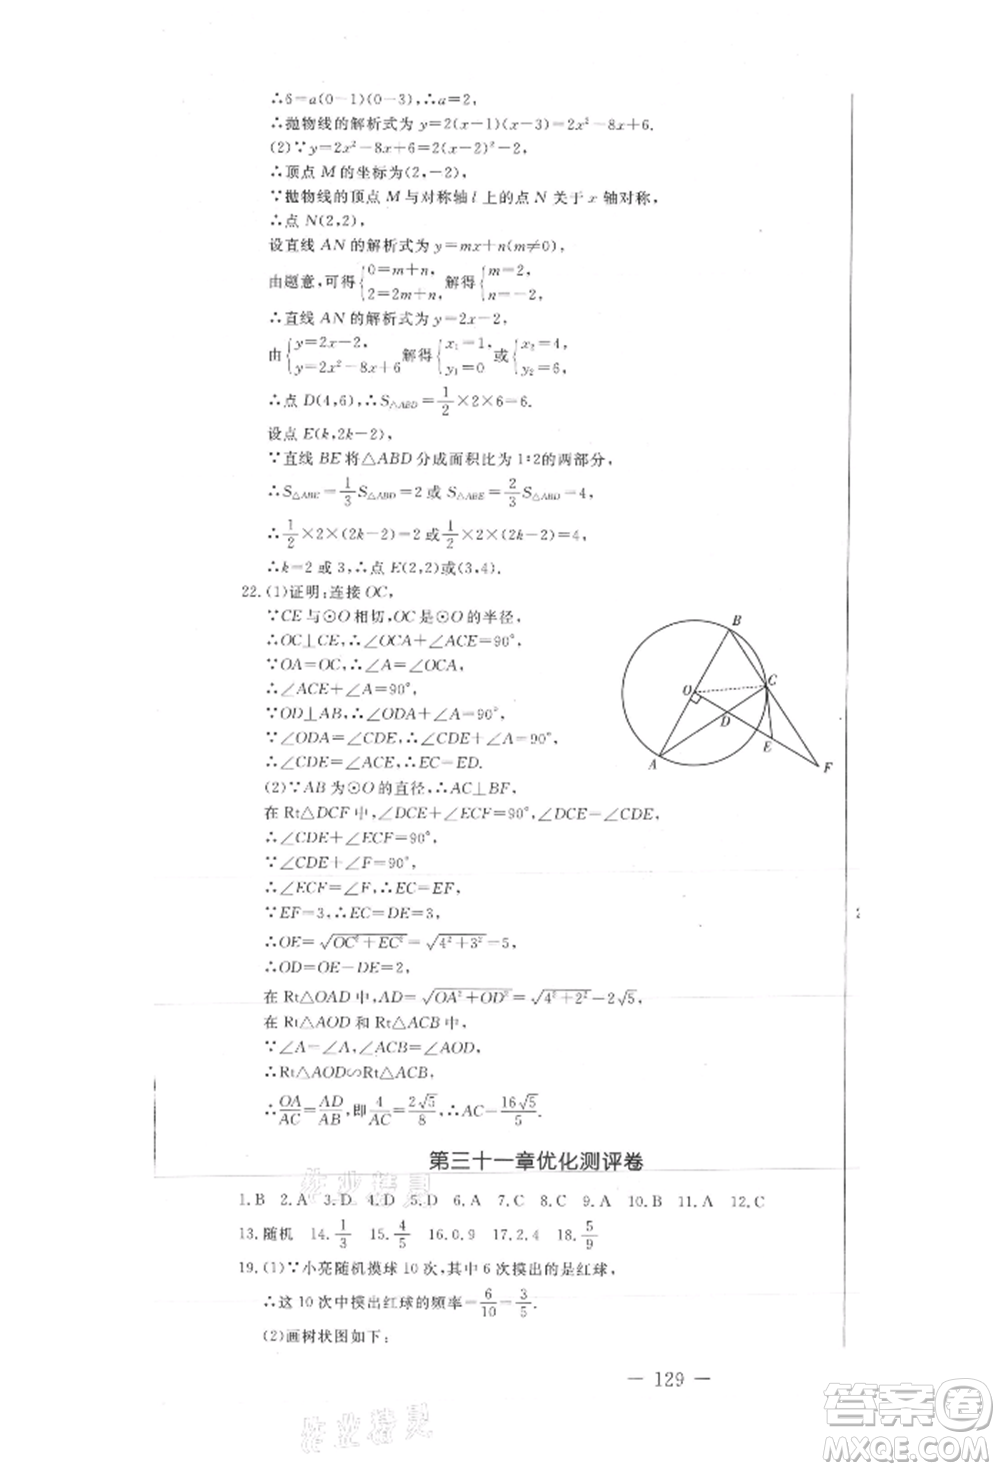 ∴6=a(0-1)(0-3),∴a=2,
∴抛物线的解析式为 y=2(x-1)(x-3)=2x²-8x+6.
(2)∵y=2x²-8x+6=2(x-2)²-2,
∴顶点 M 的坐标为(2,-2),
∵抛物线的顶点 M 与对称轴 l 上的点 N 关于 x 轴对称,
∴点 N(2,2),
设直线 AN 的解析式为 y=mx+n(m≠0),
由题意,可得{0=m+n, 2=2m+n, 解得{m=2, n=-2,
∴直线 AN 的解析式为 y=2x-2,
由{y=2x-2, y=2x²-8x+6 解得{x₁=1, y₁=0 或{x₂=4, y₂=6,
∴点 D(4,6),∴S△ABD=1/2×2×6=6.
设点 E(k,2k-2),
∵直线 BE 将△ABD 分成面积比为 1:2的两部分,
∴S△ABE=1/3S△ABD=2 或 S△ABE=2/3S△ABD=4,
∴1/2×2×(2k-2)=2 或1/2×2×(2k-2)=4,
∴k=2 或 3,∴点 E(2,2)或(3,4).
22.(1)证明:连接 OC,
∵CE 与⊙O 相切,OC 是⊙O 的半径,
∴OC⊥CE,∴∠OCA+∠ACE=90°,
∵OA=OC,∴∠A=∠OCA,
∴∠ACE+∠A=90°,
∵OD⊥AB,∴∠ODA+∠A=90°,
∵∠ODA=∠CDE,∴∠CDE+∠A=90°,
∴∠CDE=∠ACE,∴EC=ED.
(2)∵AB 为⊙O 的直径,∴AC⊥BF,
在 Rt△DCF 中,∠DCE+∠ECF=90°,∠DCE=∠CDE,
∴∠CDE+∠ECF=90°,
∵∠CDE+∠F=90°,
∴∠ECF=∠F,∴EC=EF,
∵EF=3,∴EC=DE=3,
∴OE=√(OC²+EC²)=√(4²+3²)=5,
∴OD=OE-DE=2,
在 Rt△OAD 中,AD=√(OA²+OD²)=√(4²+2²)=2√5,
在 Rt△AOD 和 Rt△ACB 中,
∵∠A=∠A,∠ACB=∠AOD,
∴Rt△AOD∽Rt△ACB,
∴OA/AC=AD/AB,即4/AC=2√5/8,∴AC=16√5/5.
B
O
C
D
E
A
F
第三十一章优化测评卷
1.B 2.A 3.D 4.D 5.D 6.A 7.C 8.C 9.A 10.B 11.A 12.C
13.随机 14.1/3 15.4/5 16.0.9 17.2.4 18.5/9
19.(1)∵小亮随机摸球 10 次,其中 6 次摸出的是红球,
∴这 10 次中摸出红球的频率=6/10=3/5.
(2)画树状图如下:
— 129 —
作业精灵
作业精灵
答案卷
MXQE.COM